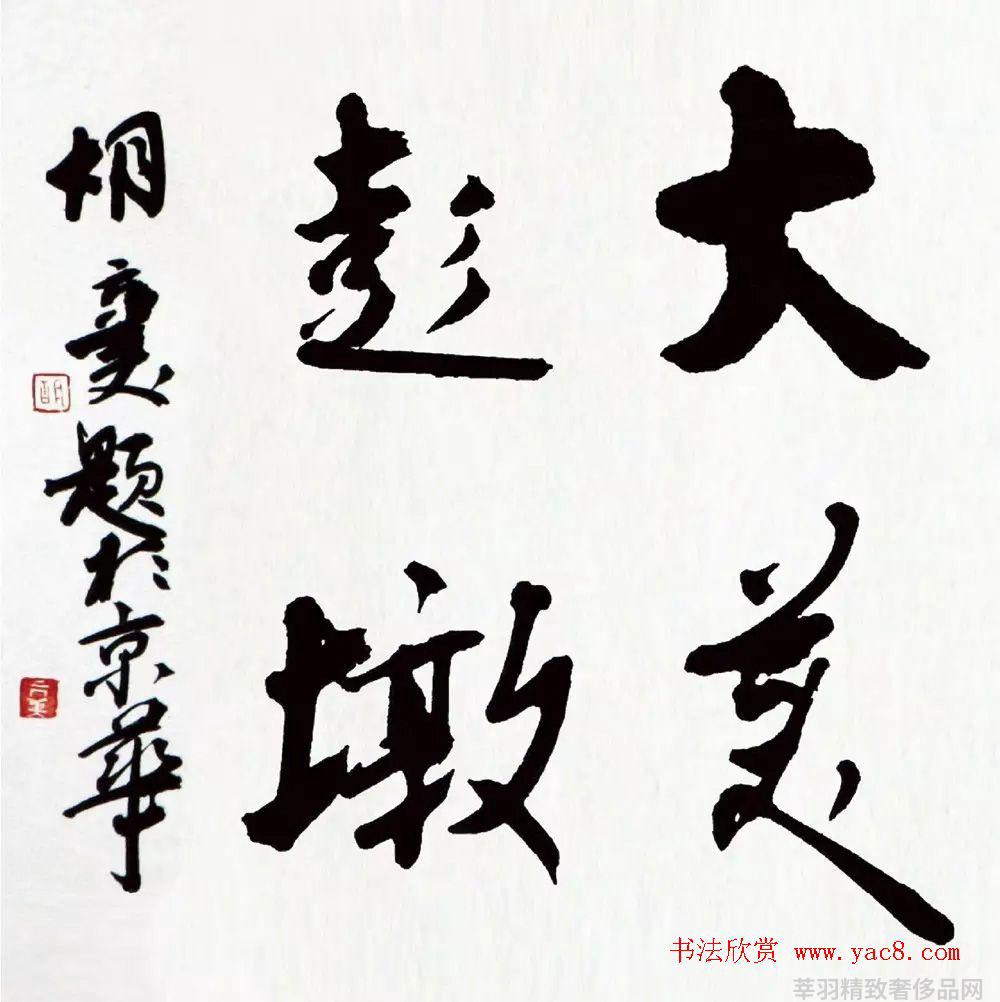 大美
彭墩
胡 题於京華
书法欣赏 www.yac8.com
莘羽精致奢侈品网